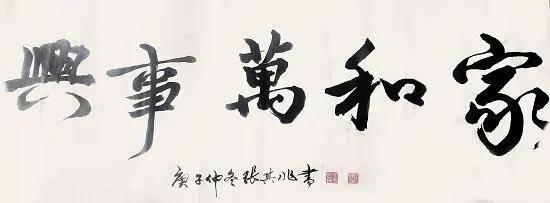 家和萬事興
庚子仲冬張其兆書